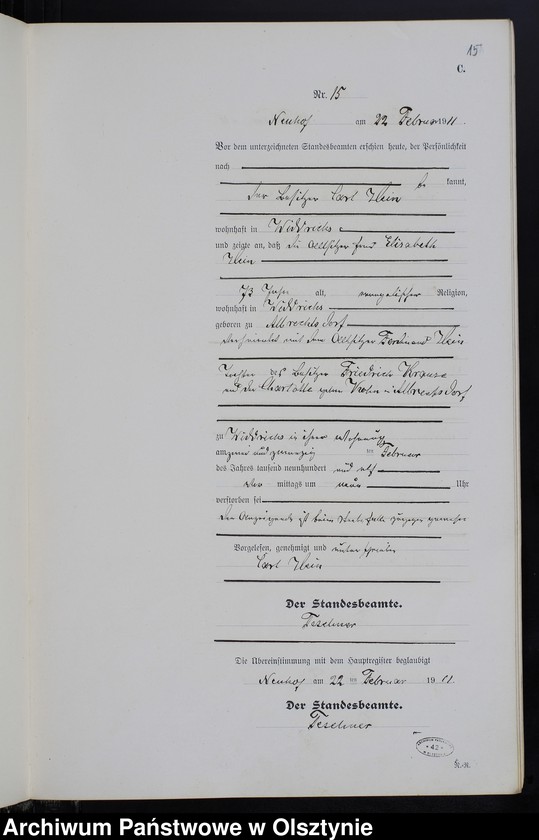 15
C.
Nr. 15
Neuhof am 22 Februar 1911.
Vor dem unterzeichneten Standesbeamten erschien heute, der Persönlichkeit
nach
be kannt,
der Besitzer Carl Hein
wohnhaft in Widdrichs
und zeigte an, daß die Altsitzer frau Elisabeth
Hein
73 Jahre alt, evangelischer Religion,
wohnhaft in Widdrichs
geboren zu Albrechtsdorf
verheiratet mit dem Altsitzer Ferdinand Hein
Tochter des Besitzer Friedrich Krause
und der Charlotte geborn in Albrechtsdorf
zu Widdrichs in ihrer Wohnung
am zwei und zwanzig ten Februar
des Jahres tausend neunhundert und elf
Vor mittags um Uhr
verstorben sei
Der Anzeigende ist beim Sterbefalle zugegen gewesen
Vorgelesen, genehmigt und unterschrieben
Carl Hein
Der Standesbeamte.
Teschner
Die Übereinstimmung mit dem Hauptregister beglaubigt
Neuhof am 22 ten Februar 1911.
Der Standesbeamte.
Teschner
42
K.-R.
Archiwum Państwowe w Olsztynie